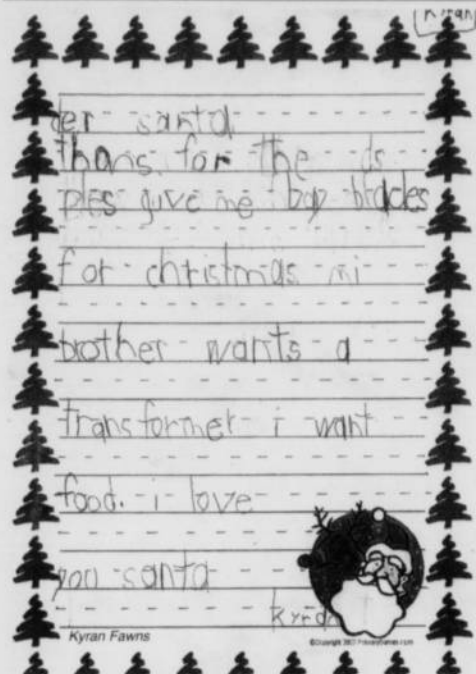 Kyran
der santa
thans for the ds
ples give me bay blades
for christmas mi
brother wants a
transformer i want
food. i love
you santa
kyran
Kyran Fawns
©Copyright PrimaryGames.com